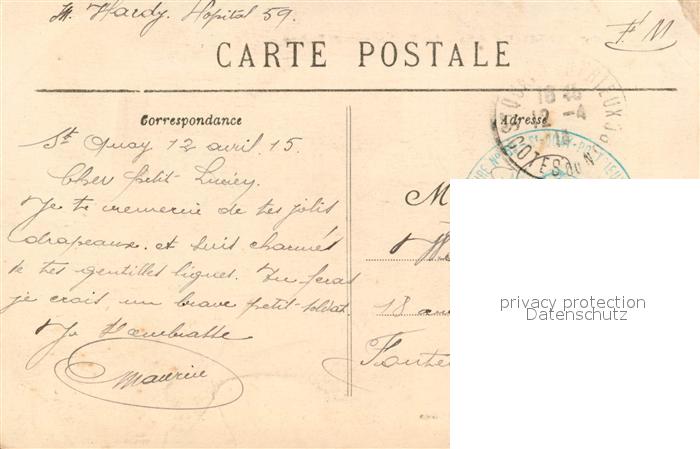 M. Hardy. Hôpital 59.
F M
CARTE POSTALE
Correspondance
Adresse
St Quay 12 avril. 15.
Cher petit Lucien.
Je te remercie de tes jolis
drapeaux. et suis charmé
de tes gentilles lignes. Tu feras
je crois, un brave petit-soldat.
Je t'embrasse
Maurice
18 45
12 -4
COTES DU N
M
18
Fonte
privacy protection
Datenschutz